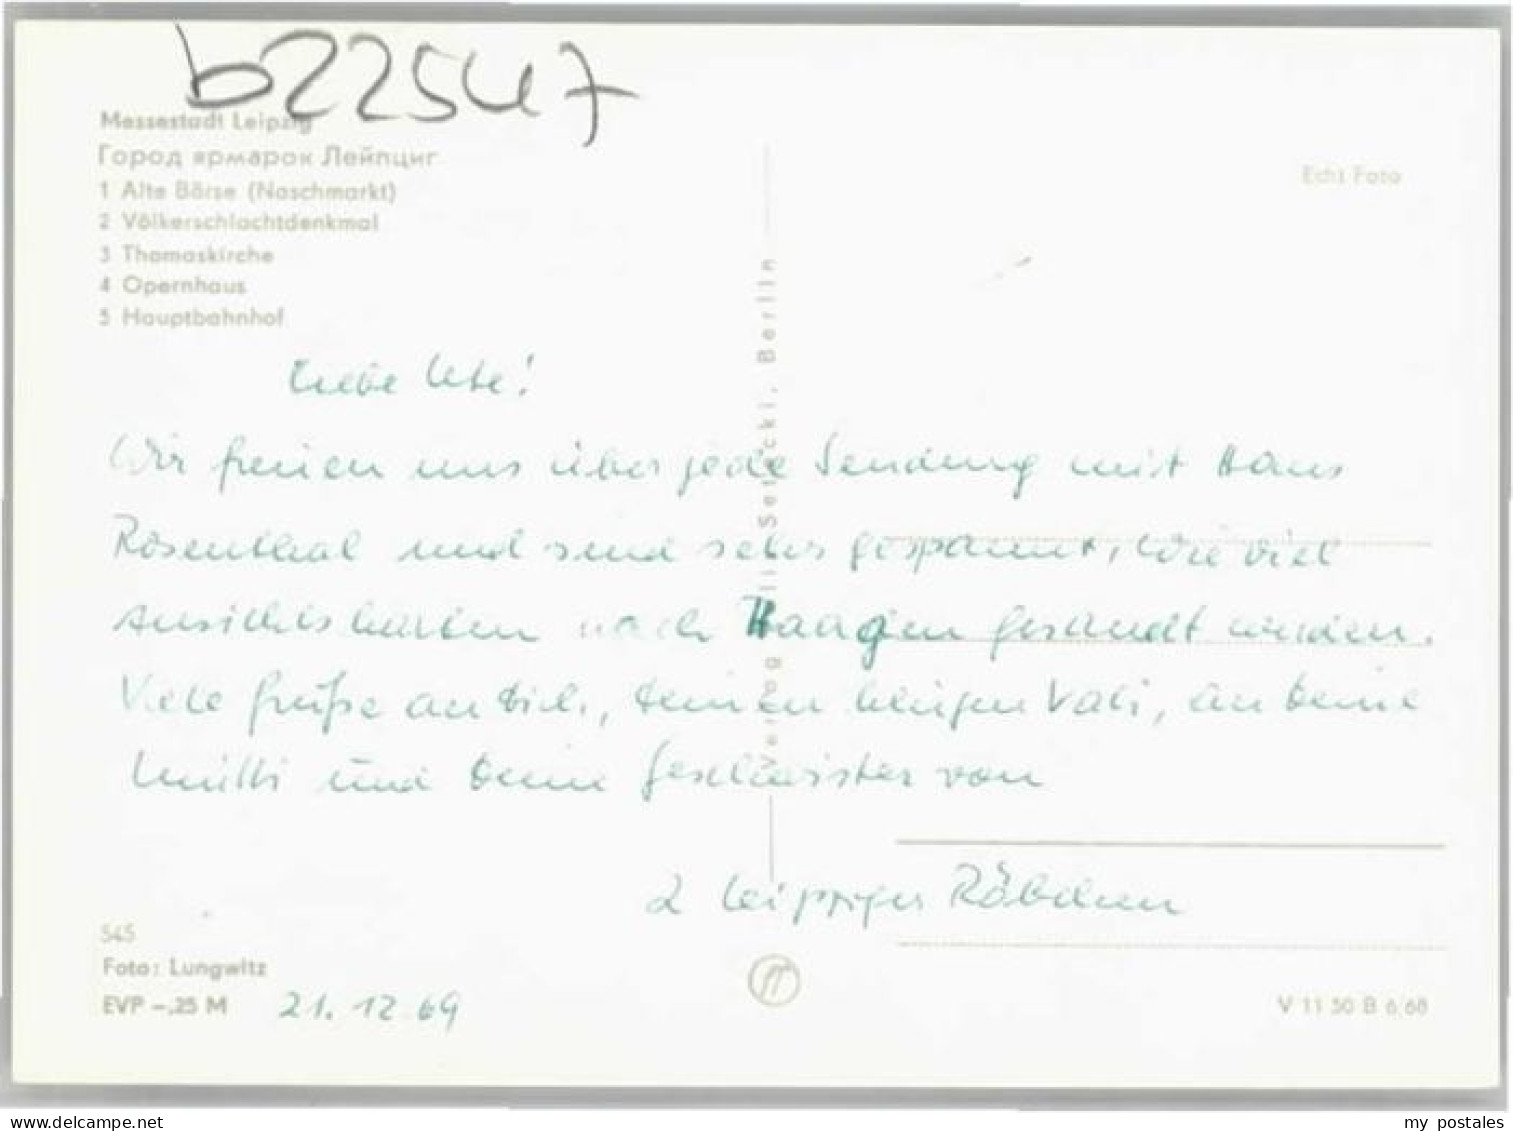 b22547
Messestadt Leipzig
Город ярмарок Лейпциг
1 Alte Börse (Naschmarkt)
2 Völkerschlachtdenkmal
3 Thomaskirche
4 Opernhaus
5 Hauptbahnhof
Echt Foto
Liebe Ute!
Wir freuen uns über jede Sendung mit Hans
Rosenthal und sind sehr gespannt, wie viel
Ansichtskarten nach Haagen gesandt werden.
Viele Grüße an Dich, Deinen Vati, an Deine
Mutti und Deine Geschwister von
2 Leipziger
Verlag Berlin
545
Foto: Lungwitz
EVP –.25 M
21. 12 69
V 11 50 B 6/68
www.delcampe.net
my_postales